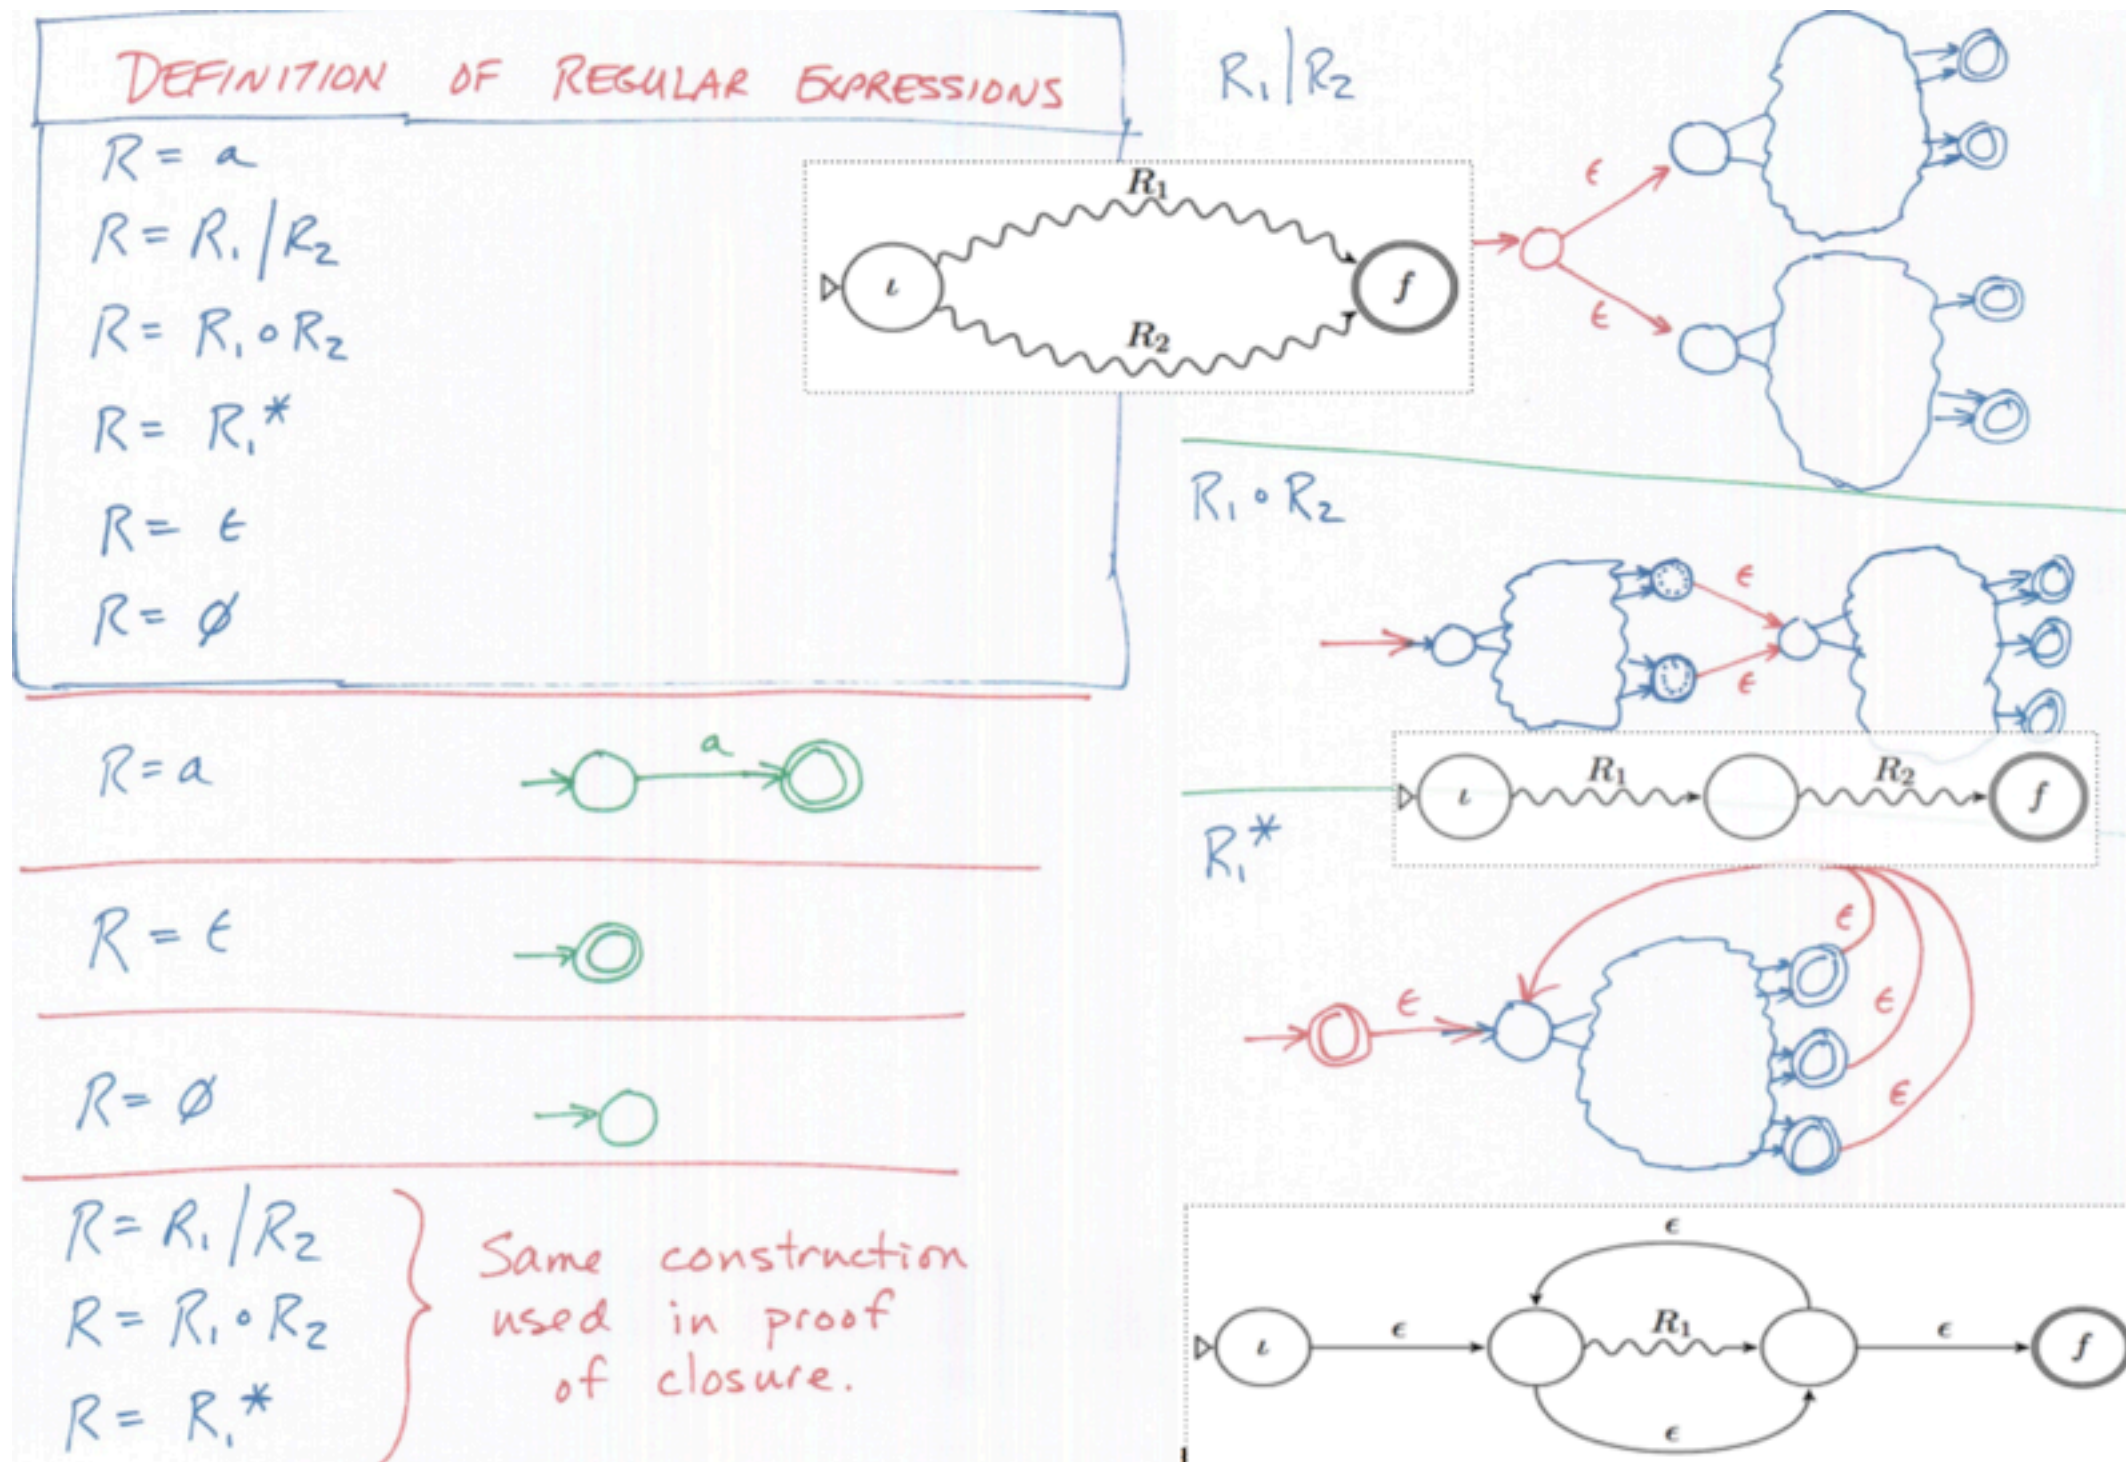 DEFINITION OF REGULAR EXPRESSIONS
R = a
R = R₁ | R₂
R = R₁ ∘ R₂
R = R₁*
R = ϵ
R = ∅
R = a
a
R = ϵ
R = ∅
R = R₁ | R₂
R = R₁ ∘ R₂
R = R₁*
Same construction
used in proof
of closure.
R₁ | R₂
R₁
ι
f
R₂
ϵ
ϵ
R₁ ∘ R₂
ϵ
ϵ
R₁
R₂
ι
f
R₁*
ϵ
ϵ
ϵ
ϵ
ϵ
R₁
ι
ϵ
ϵ
f
ϵ